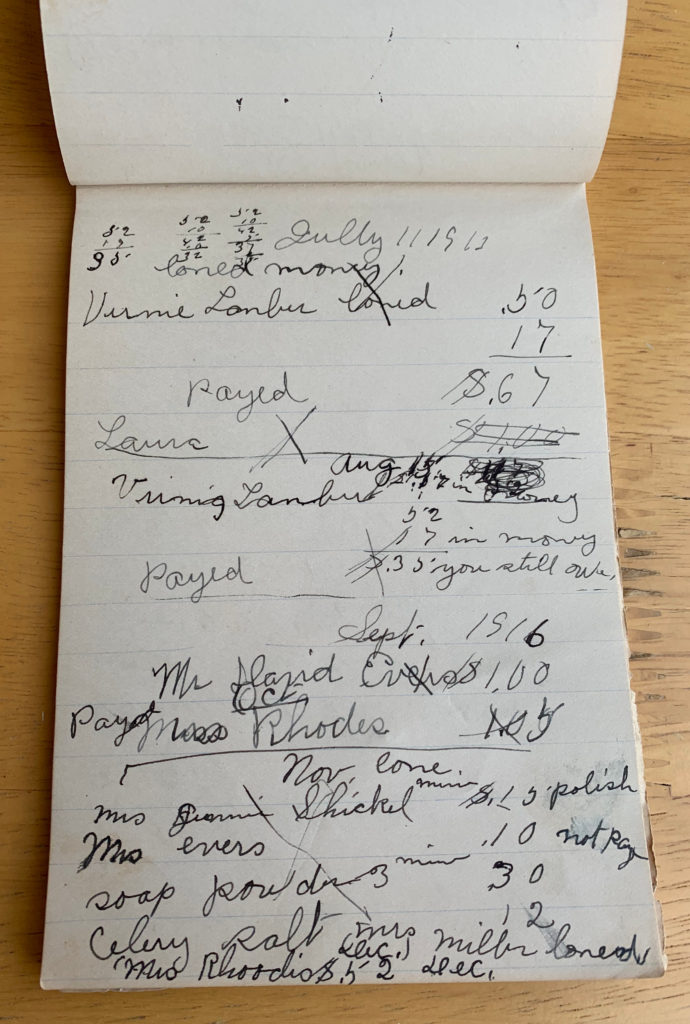 52
10
52
10
42
10
32
52
10
42
5
37
Jully 11 19 13
loned money.
Virnie Lanber loned .50
17
Payed $.67
Laura $1.00
Aug 15
Virnig Lanber in money
52
17 in money
Payed $.35 you still owe,
Sept. 1916
Mr David Evers $1.00
Oct
Payed Mrs Rhodes 1.05
Nov. lone
Mrs Shickel $.15 polish
Mrs evers .10 not pay
soap powder 3 .30
Celery salt .12
Mrs Miller loned
Dec.
Mrs Rhoodis $.52 Dec.